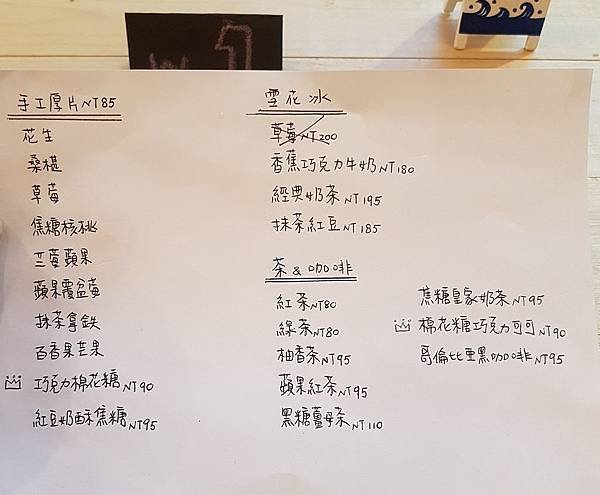 手工厚片NT85
花生
桑椹
草莓
焦糖核桃
三莓蘋果
蘋果覆盆莓
抹茶拿鉄
百香果芒果
巧克力棉花糖NT90
紅豆奶酥焦糖NT95
雪花冰
草莓NT200
香蕉巧克力牛奶NT180
經典奶茶NT195
抹茶紅豆NT185
茶&咖啡
紅茶NT80
綠茶NT80
柚香茶NT95
蘋果紅茶NT95
黑糖薑母茶NT110
蕉糖皇家奶茶NT95
棉花糖巧克力可可NT90
哥倫比亞黑咖啡NT95